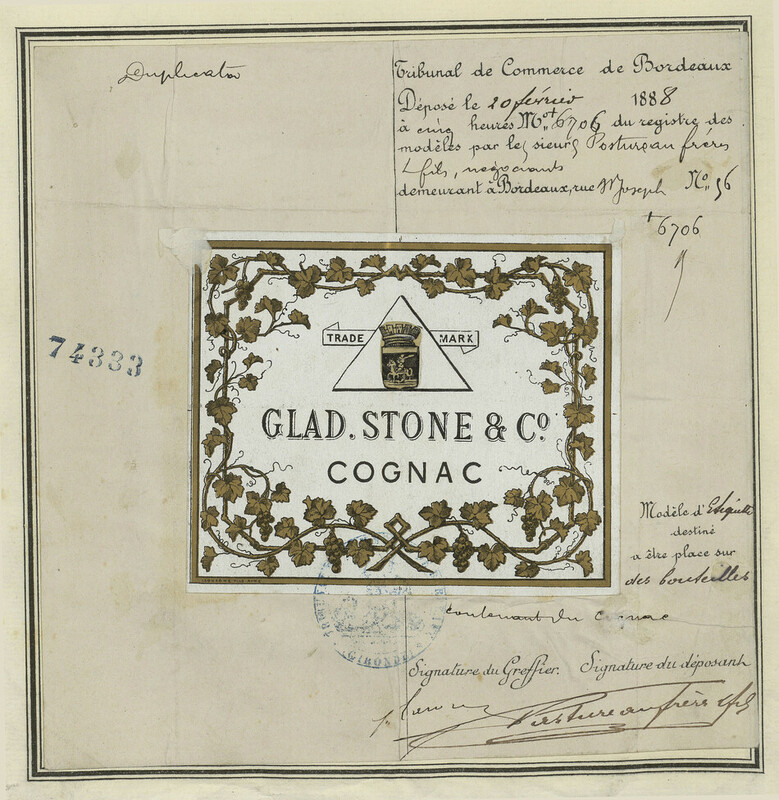 Duplicata
Tribunal de Commerce de Bordeaux
Déposé le 20 février 1888
à cinq heures N.º 6706 du registre des
modèles par les sieurs Postureau frères
& fils, négociants
demeurant à Bordeaux, rue St Joseph Nº 56
6706
TRADE MARK
74333
GLAD. STONE & Cº
COGNAC
Modèle d'Etiquette
destiné
a être place sur
des bouteilles
contenant du cognac
GIRONDE
Signature du Greffier. Signature du déposant
Postureau frères & fils